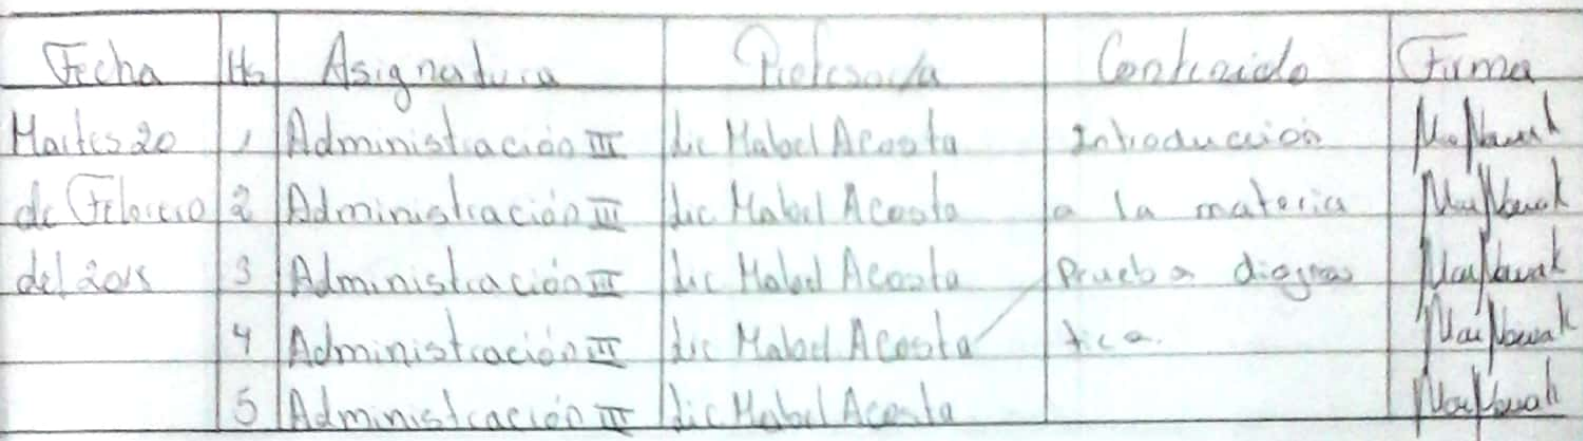 Fecha Hs Asignatura Profesor/a Contenido Firma
Martes 20 1 Administración III Lic Mabel Acosta Introducción
de Febrero 2 Administración III Lic Mabel Acosta a la materia
del 2018 3 Administración III Lic Mabel Acosta Prueba diagnos
4 Administración III Lic Mabel Acosta tica.
5 Administración III Lic Mabel Acosta